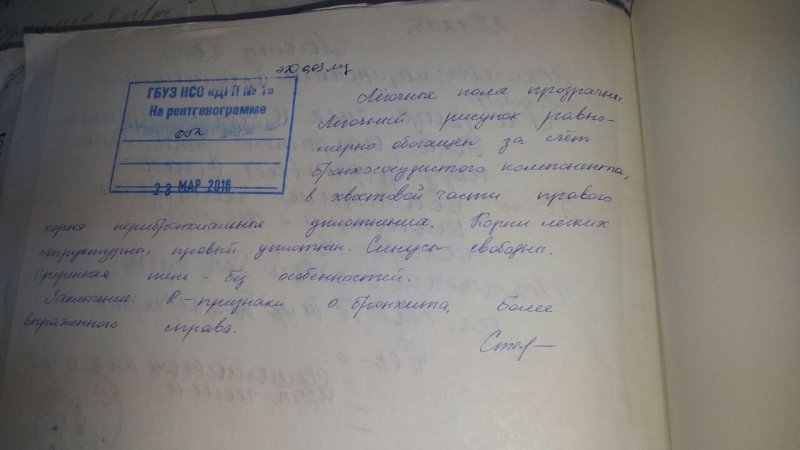 ЭД 0,03 мЗ
ГБУЗ НСО «ДГП № 1»
На рентгенограмме
ОГК
23 МАР 2016
Лёгочные поля прозрачны.
Лёгочный рисунок равно-
мерно обогащен за счёт
бронхососудистого компонента,
в хвостовой части правого
корня перибронхиальные уплотнения. Корни лёгких
структурны, правый уплотнен. Синусы свободны.
Срединная тень - без особенностей.
Заключение: R-признаки о. бронхита, более
выраженного справа.